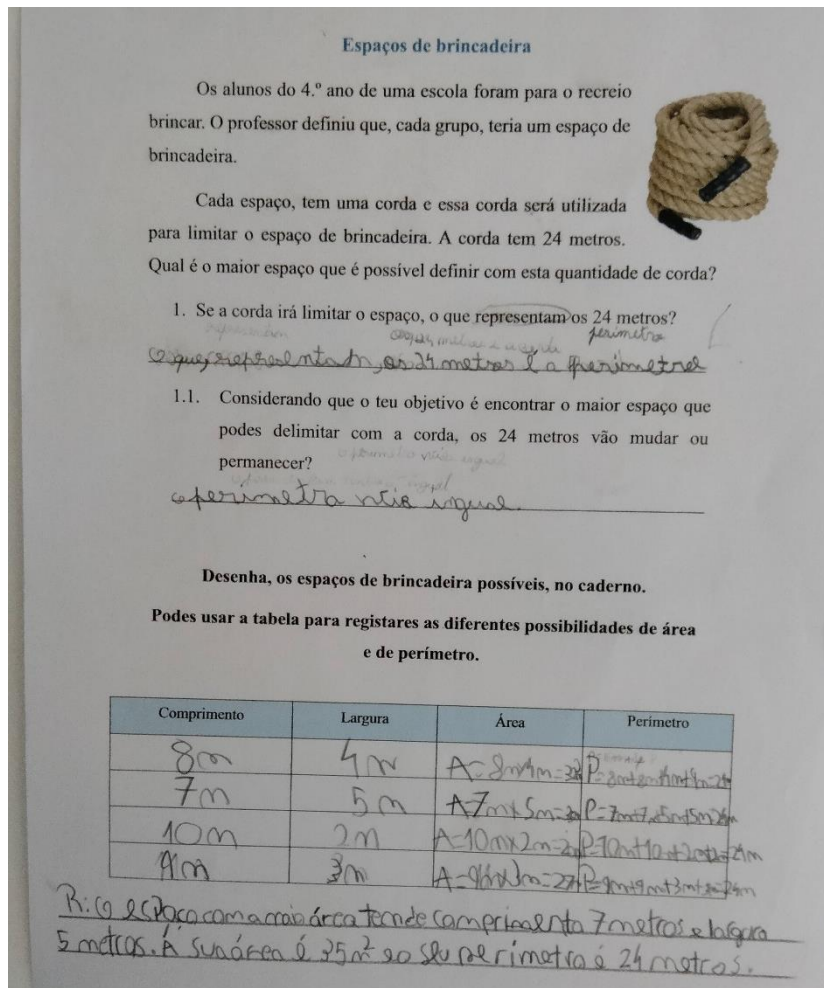 Espaços de brincadeira
Os alunos do 4.º ano de uma escola foram para o recreio
brincar. O professor definiu que, cada grupo, teria um espaço de
brincadeira.
Cada espaço, tem uma corda e essa corda será utilizada
para limitar o espaço de brincadeira. A corda tem 24 metros.
Qual é o maior espaço que é possível definir com esta quantidade de corda?
1. Se a corda irá limitar o espaço, o que representam os 24 metros?
perimetro
O que representam, os 24 metros é a
1.1. Considerando que o teu objetivo é encontrar o maior espaço que
podes delimitar com a corda, os 24 metros vão mudar ou
permanecer?
o perimetro
Desenha, os espaços de brincadeira possíveis, no caderno.
Podes usar a tabela para registares as diferentes possibilidades de área
e de perímetro.
Comprimento Largura Área Perímetro
8m 4m A=8m×4m=32 P=8m+8m+4m+4m=24m
7m 5m A=7m×5m= P=7m+7m+5m+5m=24m
10m 2m A=10m×2m=20 P=10m+10m+2m+2m=24m
9m 3m A=9m×3m=27 P=9m+9m+3m+3m=24m
R: O espaço com a maio área tem de comprimento 7 metros e largura
5 metros. A sua área é 35m² e o seu perimetro é 24 metros.